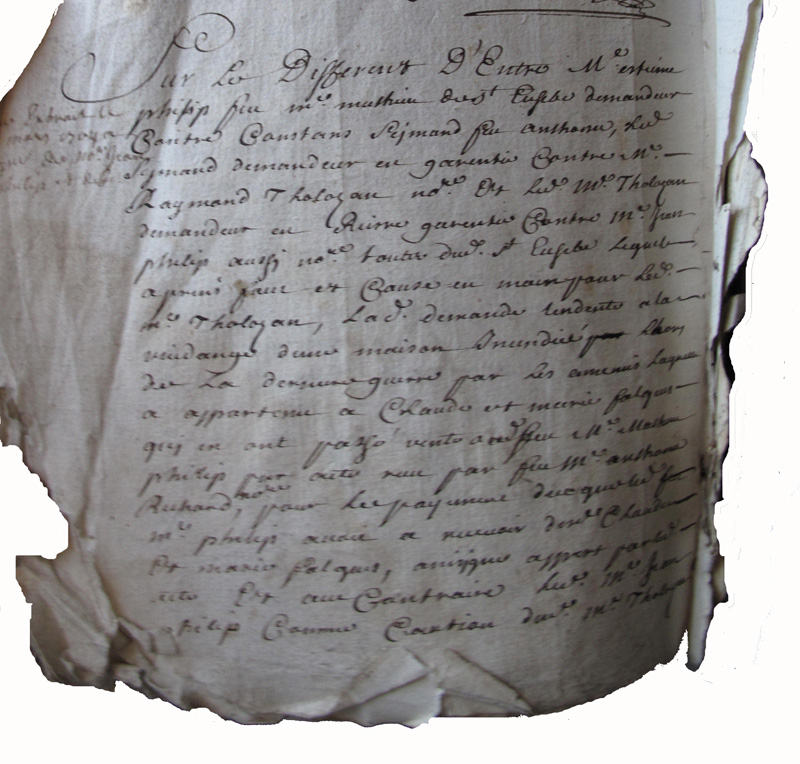 Sur Le Different D'Entre Me estiene
philip feu me mathieu de st Eusebe demandeur
Contre Constans Seimand feu anthoine, Led
Seimand demandeur en garentie Contre Me
Raymond Tholozan nore Et Led Me Tholozan
demandeur en Riere garentie Contre Me Jean
philip aussy nore toutes dud st Eusebe Lequel
a prins faict et Cause en main pour Led
me Tholozan, Lad demande tendente a la
vuidange dune maison Incendiée Lhors
de La derniere guerre par Les enemis Laquelle
a appartenu a Claude et marie falques
qui en ont passé vente aud feu Me Mathieu
philip par acte reçu par feu Me anthoine
Richard nore, pour Le payement duquel led feu
me philip avoit a recevoir desd Claude
Et marie falques, ainsy que appert par led
acte Et au Contraire Led Me Jean
philip Comme Caution dud me Tholozan